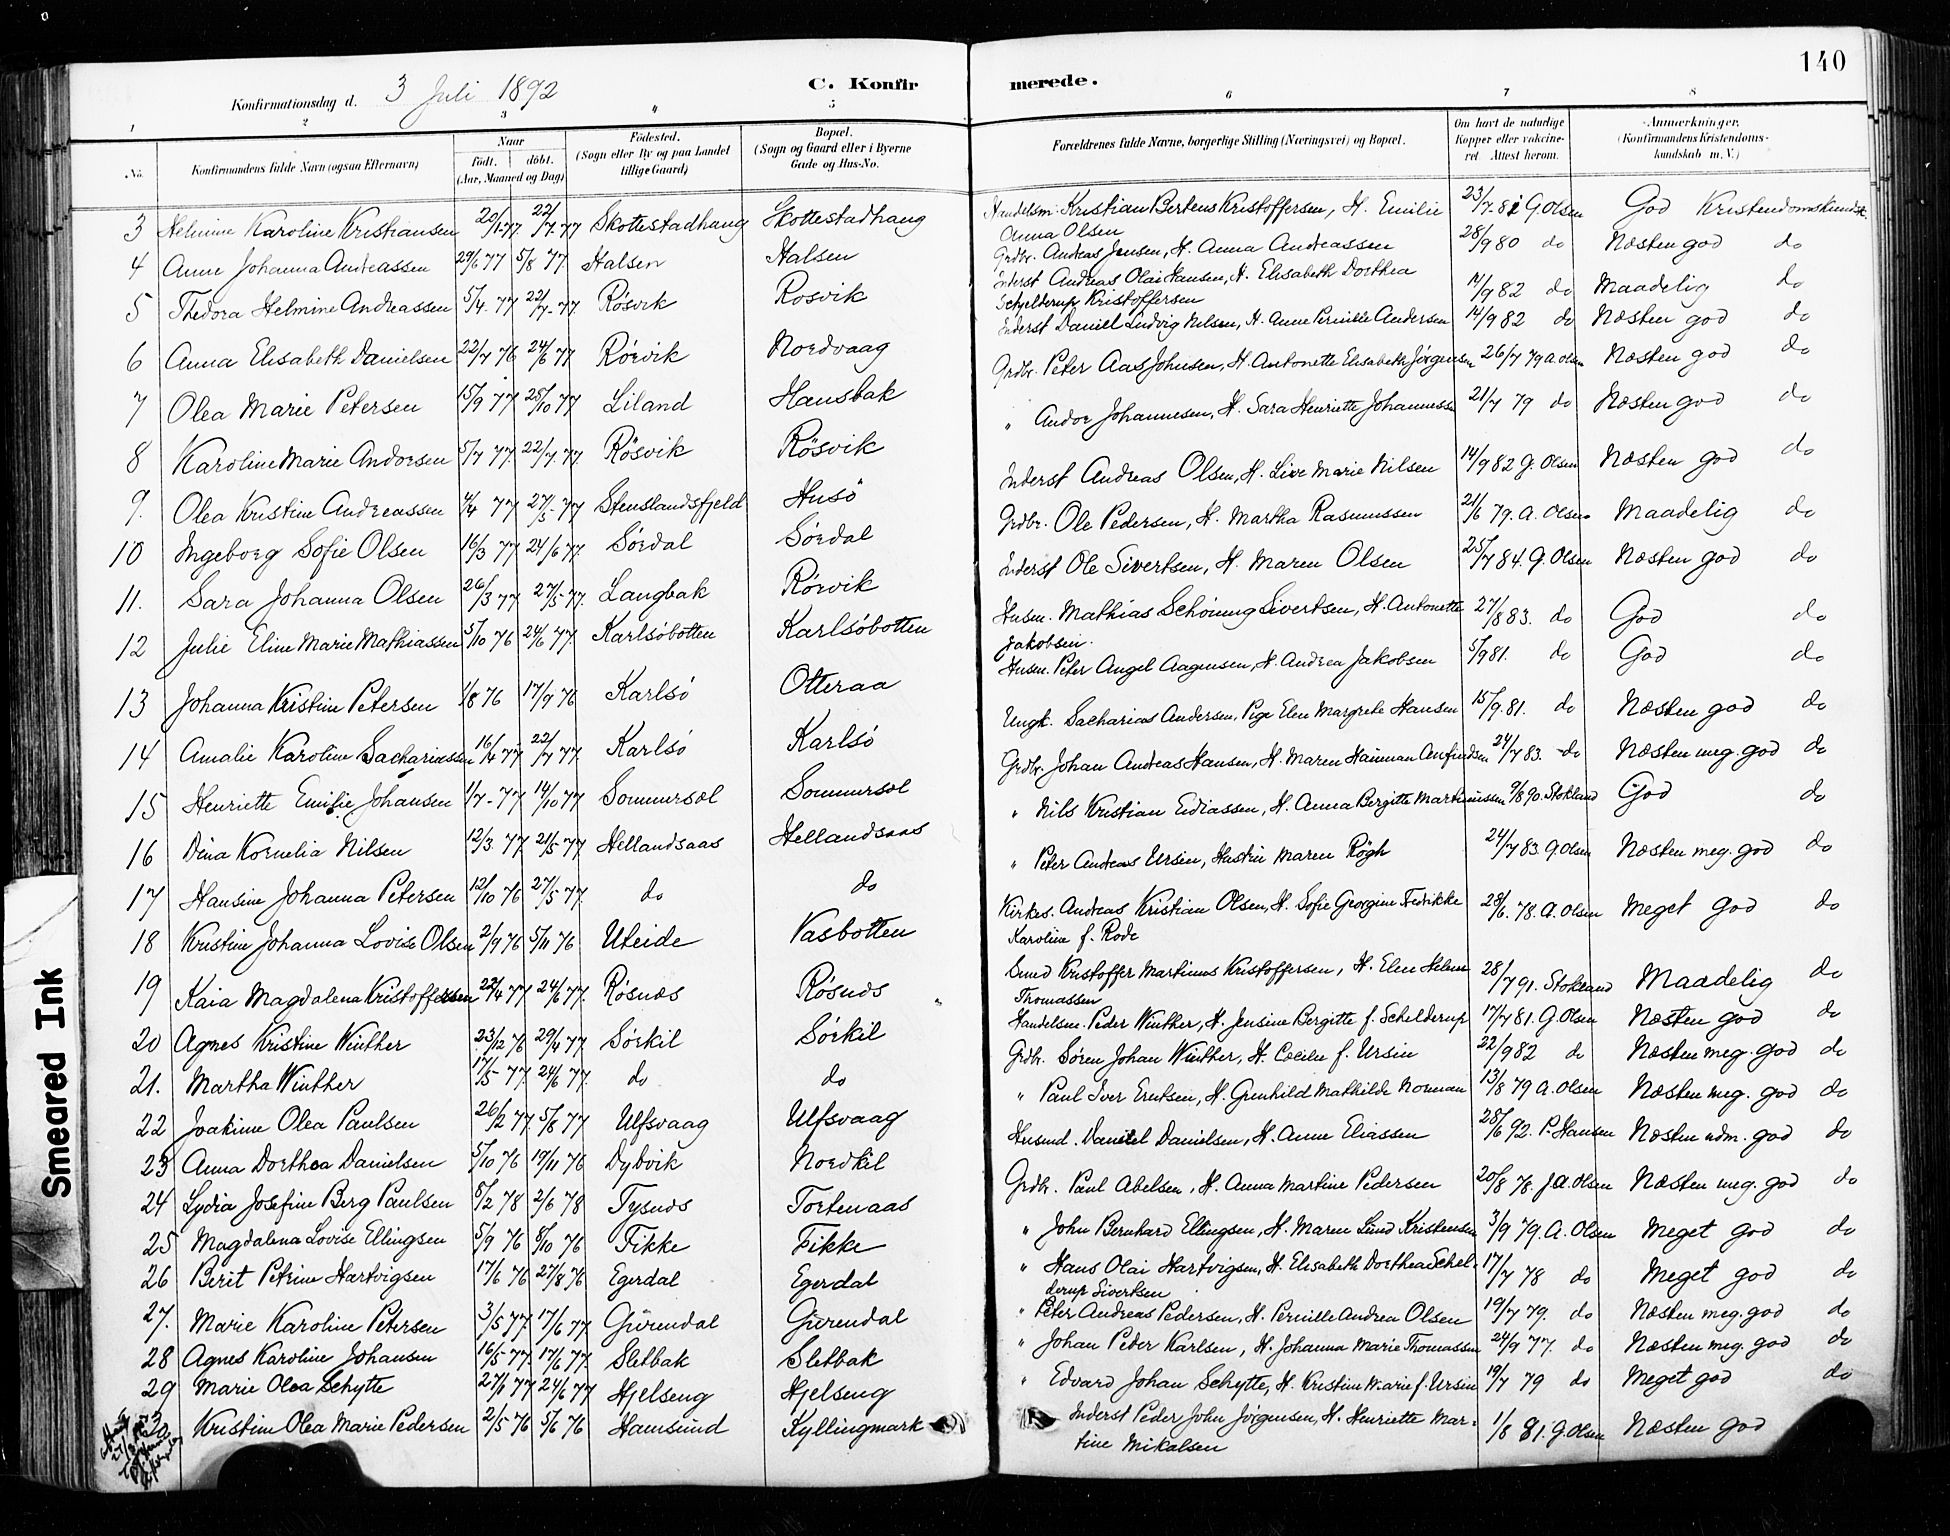 140
Konfirmationsdag d. 3 Juli 1892
C. Konfirmerede.
1 2 3 4 5 6 7 8
No. Konfirmandens fulde Navn (ogsaa Efternavn) Naar født. døbt. (Aar, Maaned og Dag) Fødested. (Sogn eller By og paa Landet tillige Gaard) Bopæl. (Sogn og Gaard eller i Byerne Gade og Hus-No. Forældrenes fulde Navne, borgerlige Stilling (Næringsvei) og Bopæl. Om havt de naturlige Kopper eller vakcineret. Attest herom. Anmærkninger. (Konfirmandens Kristendomskundskab m. V.)
3 Helmine Karoline Kristiansen 20/1-77 22/7-77 Skottestadhaug Skottestadhaug Handelsm. Kristian Bertens Kristoffersen, H. Emilie Anna Olsen 23/7-81 G. Olsen God Kristendomskundsk.
4 Anne Johanna Andreassen 29/6 77 5/8 77. Halsen Halsen Grdbr. Andreas Jensen, H. Anna Andreassen 28/9 80 do Næsten god do
5 Thedora Helmine Andreassen 5/4. 77 22/7-77 Røsvik Rosvik Inderst Andreas Olai Hansen, H. Elisabeth Dorthea Schjelderup Kristoffersen 14/9 82 do Maadelig do
6 Anna Elisabeth Danielsen 22/7 76 24/6 77 Rørvik Nordvaag Inderst Daniel Ludvig Nilsen, H. Anne Pernille Andersen 14/9 82 do Næsten god do
7 Olea Marie Petersen 15/9 77 28/10 77 Liland Hansbak Grdbr. Peter Aas Johnsen, H. Antonette Elisabeth Jørgensen 26/7 79 A. Olsen Næsten god do
8 Karoline Marie Andorsen 5/7 77. 22/7. 77. Røsvik Røsvik " Andor Johannesen, H. Sara Henriette Johannessen 21/7 79 do Næsten god do
9. Olea Kristine Andreassen 4/4 77 27/5-77 Stenslandsfjeld Husö Inderst Andreas Olsen, H. Live Marie Nilsen 14/9 82 G. Olsen Næsten god do
10 Ingeborg Sofie Olsen 16/3 77 24/6 77. Sørdal Sørdal Grdbr. Ole Pedersen, H. Martha Rasmussen 21/6 79. A. Olsen Maadelig do
11. Sara Johanna Olsen 26/3 77 27/5-77. Langbak Rørvik Inderst Ole Sivertsen, H. Maren Olsen 25/7 84. G. Olsen Næsten god do
12 Julie Eline Marie Mathiassen 5/10 76 24/6 77. Karlsøbotten Karlsøbotten Husm. Mathias Schøning Sivertsen, H. Antonette Jakobsen. 27/8 83. do God do
13 Johanna Kristine Petersen 1/8 76 17/9 76 Karlsø Otteraa Husm. Peter Angel Aagensen, H. Andrea Jakobsen 5/9 81. do God do
14 Amalie Karoline Sachariassen 16/4 77 22/7 77 Karlsø Karlsø Ungk. Sacharias Andersen, Pige Elen Margrete Hansen 15/9. 81. do Næsten god do
15 Henriette Emilie Johansen 1/7-77 14/10 77 Sommersæl Sommersel Grdbr. Johan Andreas Hansen, H. Maren Hanman Anfindsen 24/7 83. do Næsten meg. god do
16 Dina Kornelia Nilsen 12/3 77 21/5 77 Hellandsaas Hellandsaas " Nils Kristian Eliassen, H. Anna Bergitte Martinussen 9/8 90. Stokland God do
17 Hansine Johanna Petersen 12/10 76 27/5 77. do do " Peter Andreas Ursin, Hustru Maren Røgh 24/7 83. G. Olsen Næsten meg. god do
18 Kristine Johanna Lovise Olsen 2/9 76 5/11 76 Uteide Vasbotten Kirkes. Andreas Kristian Olsen, H. Sofie Georgine Fredrikke Karoline f. Rode 28/6. 78. A. Olsen Meget god do
19 Kaia Magdalena Kristoffersen 22/4 77 24/6 77. Røsnæs Røsnæs Smed Kristoffer Martinus Kristoffersen, H. Elen Helene Thomassen 28/7 91. Stokland Maadelig do
20 Agnes Kristine Winther 23/12 76 29/4 77 Sørkil Sørkil Handelsm. Peder Winther, H. Jensine Bergitte f. Schelderup 17/7 81. G. Olsen Næsten god do
21. Martha Winther 17/5-77. 24/6 77. do do Grdbr. Søren Johan Winther, H. Cecilie f. Ursin 22/9 82 do Næsten meg. god do
22 Joakime Olea Paulsen 26/2 77 5/8 77 Ulfsvaag Ulfsvaag " Paul Iver Erntsen, H. Gunhild Mathilde Norman 13/8 79 A. Olsen Næsten meg. god do
23 Anna Dorthea Danielsen 5/10 76 19/11 76 Dybvik Nordkil Husmd. Daniel Danielsen, H. Anne Eliassen 28/6 92. P. Hansen Næsten udm. god do
24 Lydia Josefine Berg Paulsen 5/2 78 2/6 78 Tysnæs Tortenaas Grdbr. Paul Abelsen, H. Anna Martine Pedersen 20/8 78. J.A. Olsen Næsten meg. god do
25 Magdalena Lovise Ellingsen 5/9 76 8/10 76 Fikke Fikke " John Bernhard Ellingsen, H. Maren Lund Kristensen 3/9 79. A. Olsen Meget god do
26 Berit Petrine Hartvigsen 17/6 76 27/8 76 Egerdal Egerdal " Hans Olai Hartvigsen, H. Elisabeth Dorthea Schelderup Sivertsen 17/7 78 do Meget god do
27. Marie Karoline Petersen 3/5 77. 17/6 77. Gürendal Gürendal " Peter Andreas Pedersen, H. Pernille Andrea Olsen 19/7 79. do Næsten meg. god do
28 Agnes Karoline Johansen 16/5 77. 17/6 77. Sletbak Sletbak " Johan Peder Karlsen, H. Johanna Marie Thomassen 24/9 77. do Næsten meg. god do
29 Marie Olea Schytte 27/1 77 24/6 77 Hjelseng Hjelseng " Edvard Johan Schytte, H. Kristine Marie f. Ursin 19/7 79 do Meget god do
30 Kristine Olea Marie Pedersen 2/5 76 5/6 76 Hamsund Kyllingmark Inderst Peder John Jørgensen, H. Henriette Martine Mikalsen 1/8 81. G. Olsen Næsten god
Smeared Ink